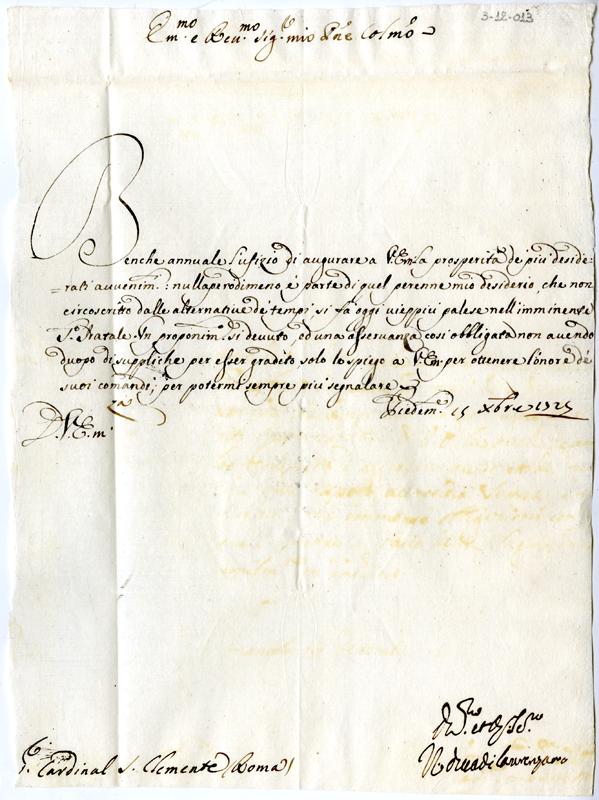 3-12-013
Em.mo e Rev.mo Sig.r mio P.ne Colmo
Benche annuale l'ufizio di augurare a V.Em.za prosperità de più deside=
=rati avvenim.ti: nulla però di meno è parte di quel perenne mio desiderio, che non
circoscritto dalle alternative de tempi si fà oggi vieppiù palese nell'imminente
S.to Natale. Un proponim.to sì devuto, ed una osservanza così obbligata non avendo
duopo di suppliche per esser gradito solo lo spiego a V.Em. per ottenere l'onore de
suoi comandi, per potermi sempre più segnalare
Piedem.te 15 Xbre 1725
D. V. E. m.za
S. Cardinal S. Clemente (Roma)
di Laurenzano